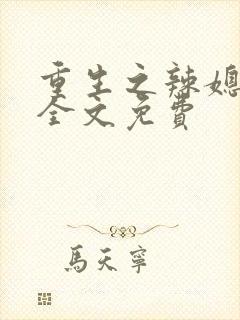 重生之辣媳
全文免費
馬天寧